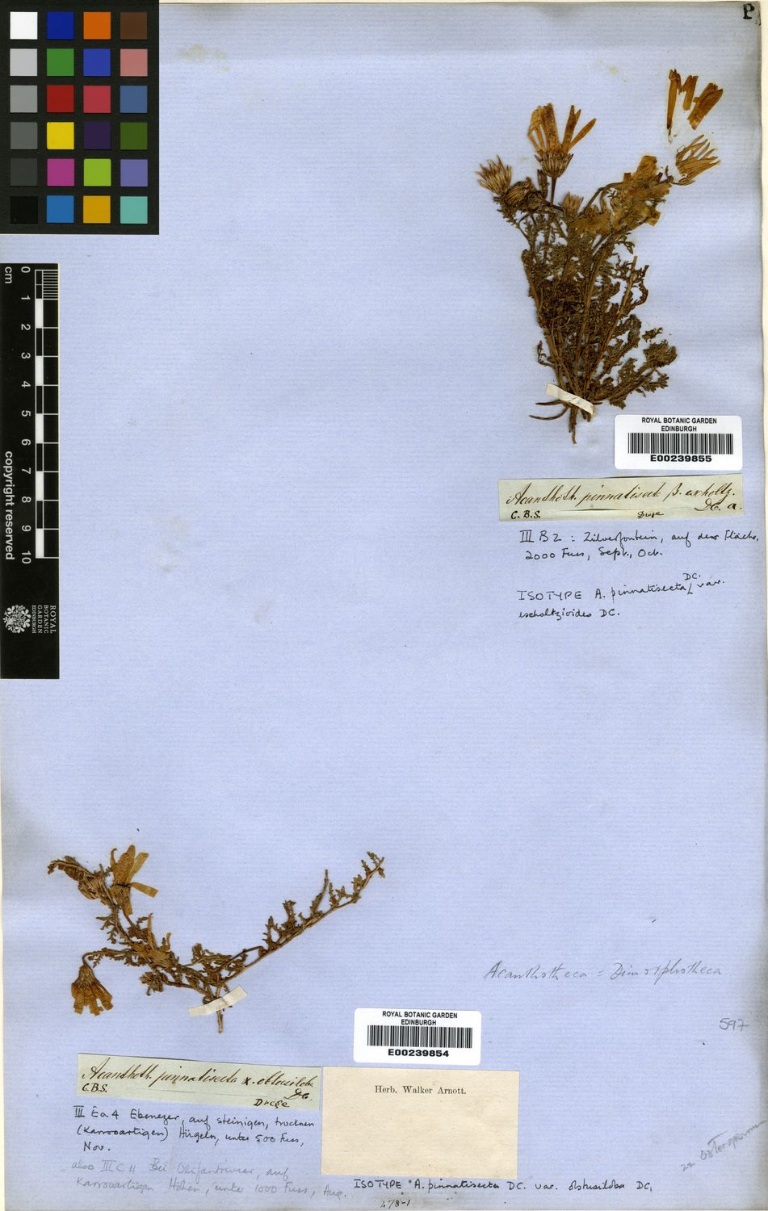 P
cm
0
1
2
3
4
5
6
7
8
9
10
copyright reserved
ROYAL
BOTANIC
GARDEN
EDINBURGH
ROYAL BOTANIC GARDEN
EDINBURGH
E00239855
Acanthoth. pinnatisecta β.
DC. a.
C.B.S.
Drège
III B 2 : Zilverfontein, auf der Fläche,
2000 Fuss, Sept., Oct.
DC.
ISOTYPE A. pinnatisecta var.
escholtzioides DC.
Acanthotheca = Dimorphotheca
597
ROYAL BOTANIC GARDEN
EDINBURGH
E00239854
Acanthoth. pinnatisecta α. obtusiloba
DC.
C.B.S.
Drège
Herb. Walker Arnott.
III E a 4 Ebenezer, auf steinigen, trocknen
(Karrooartigen) Hügeln, unter 500 Fuss,
Nov.
also III C 11 Bei auf
Karrooartigen Höhen, unter 1000 Fuss, Aug.
ISOTYPE A. pinnatisecta DC. var. obtusiloba DC.
478-1